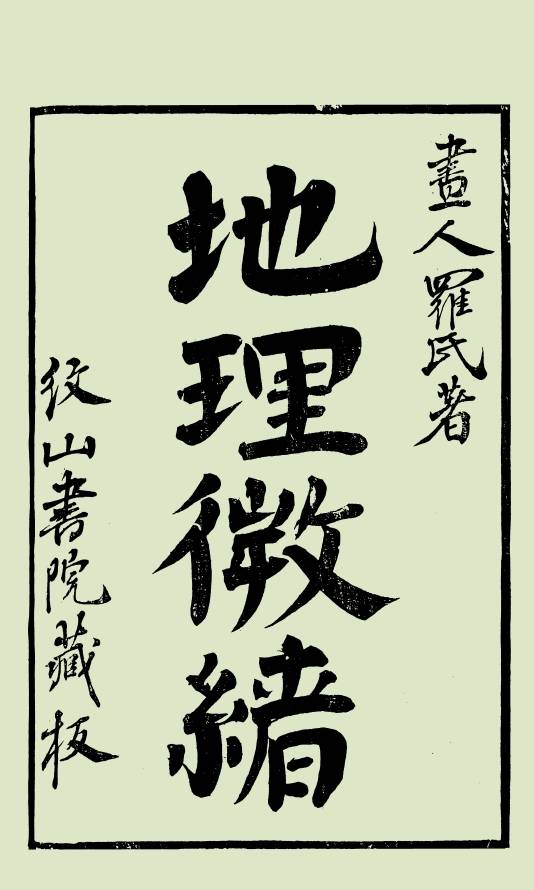 畫人羅氏著
地理微緒
紋山書院藏板